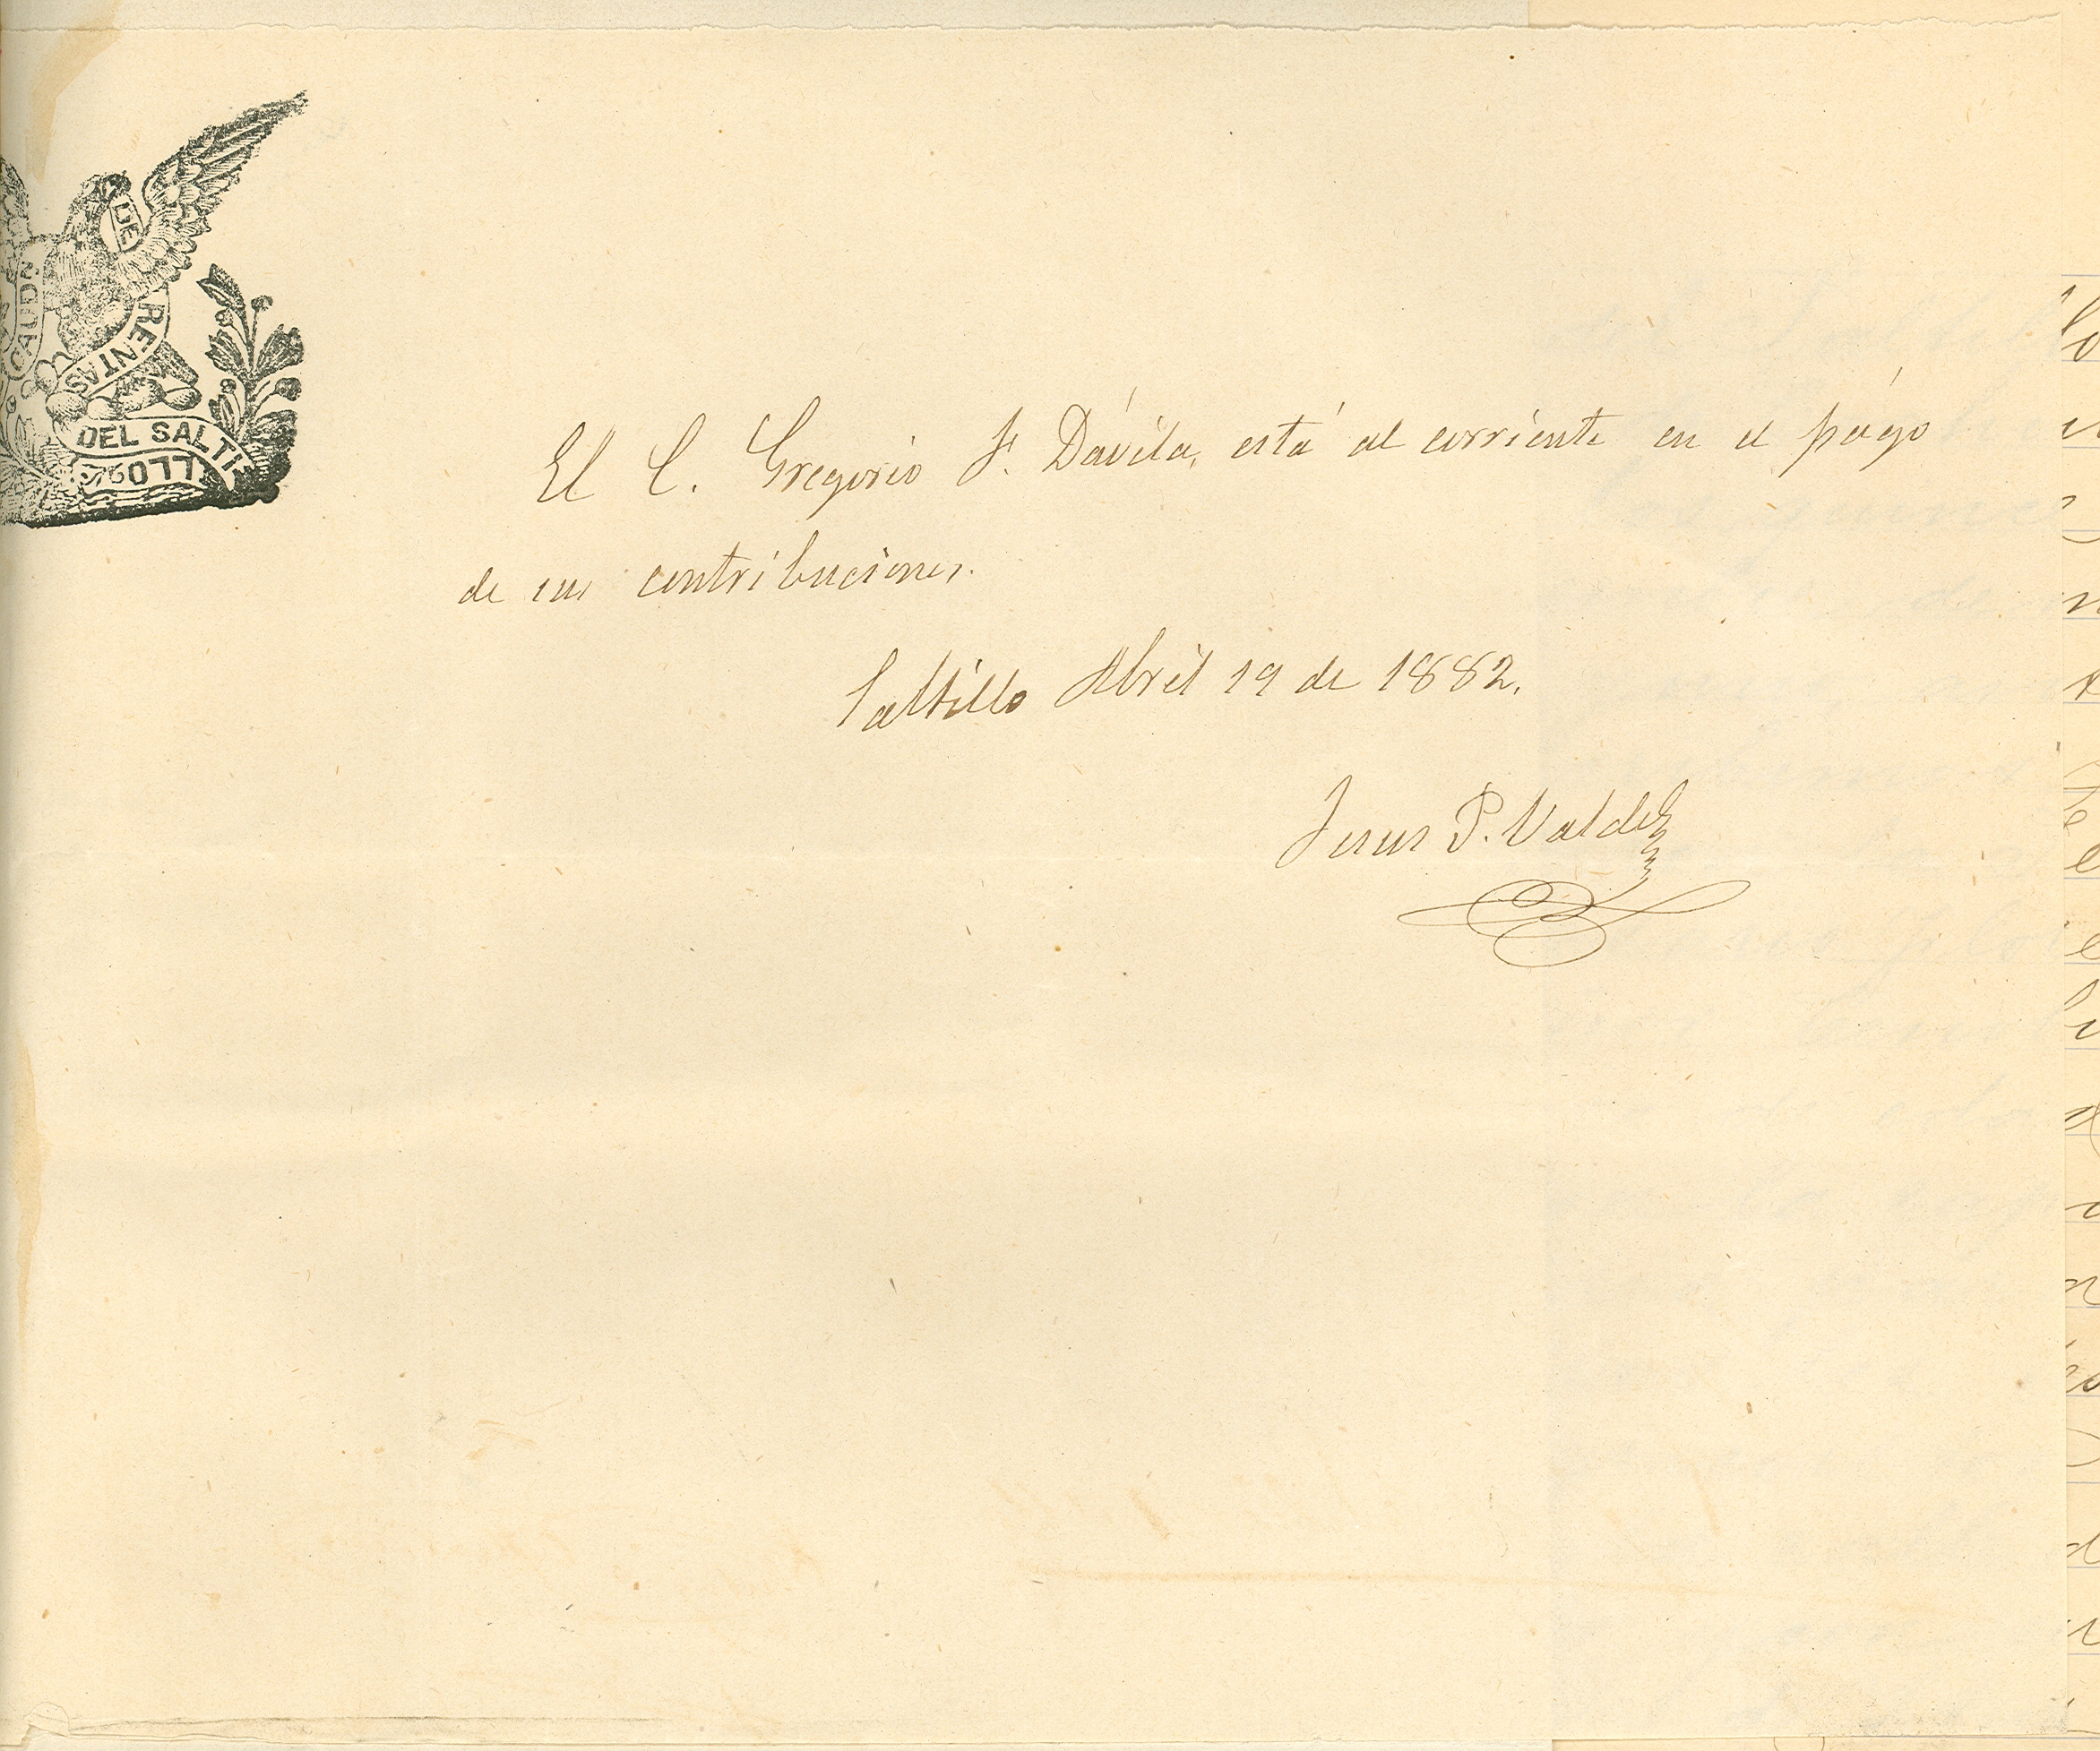 DE
CAUDN
RENTAS
DEL SALTILLO
El C. Gregorio F. Dávila, está al corriente en el págo
de sus contribuciones.
Saltillo Abril 19 de 1882.
Jesus P. Valdez